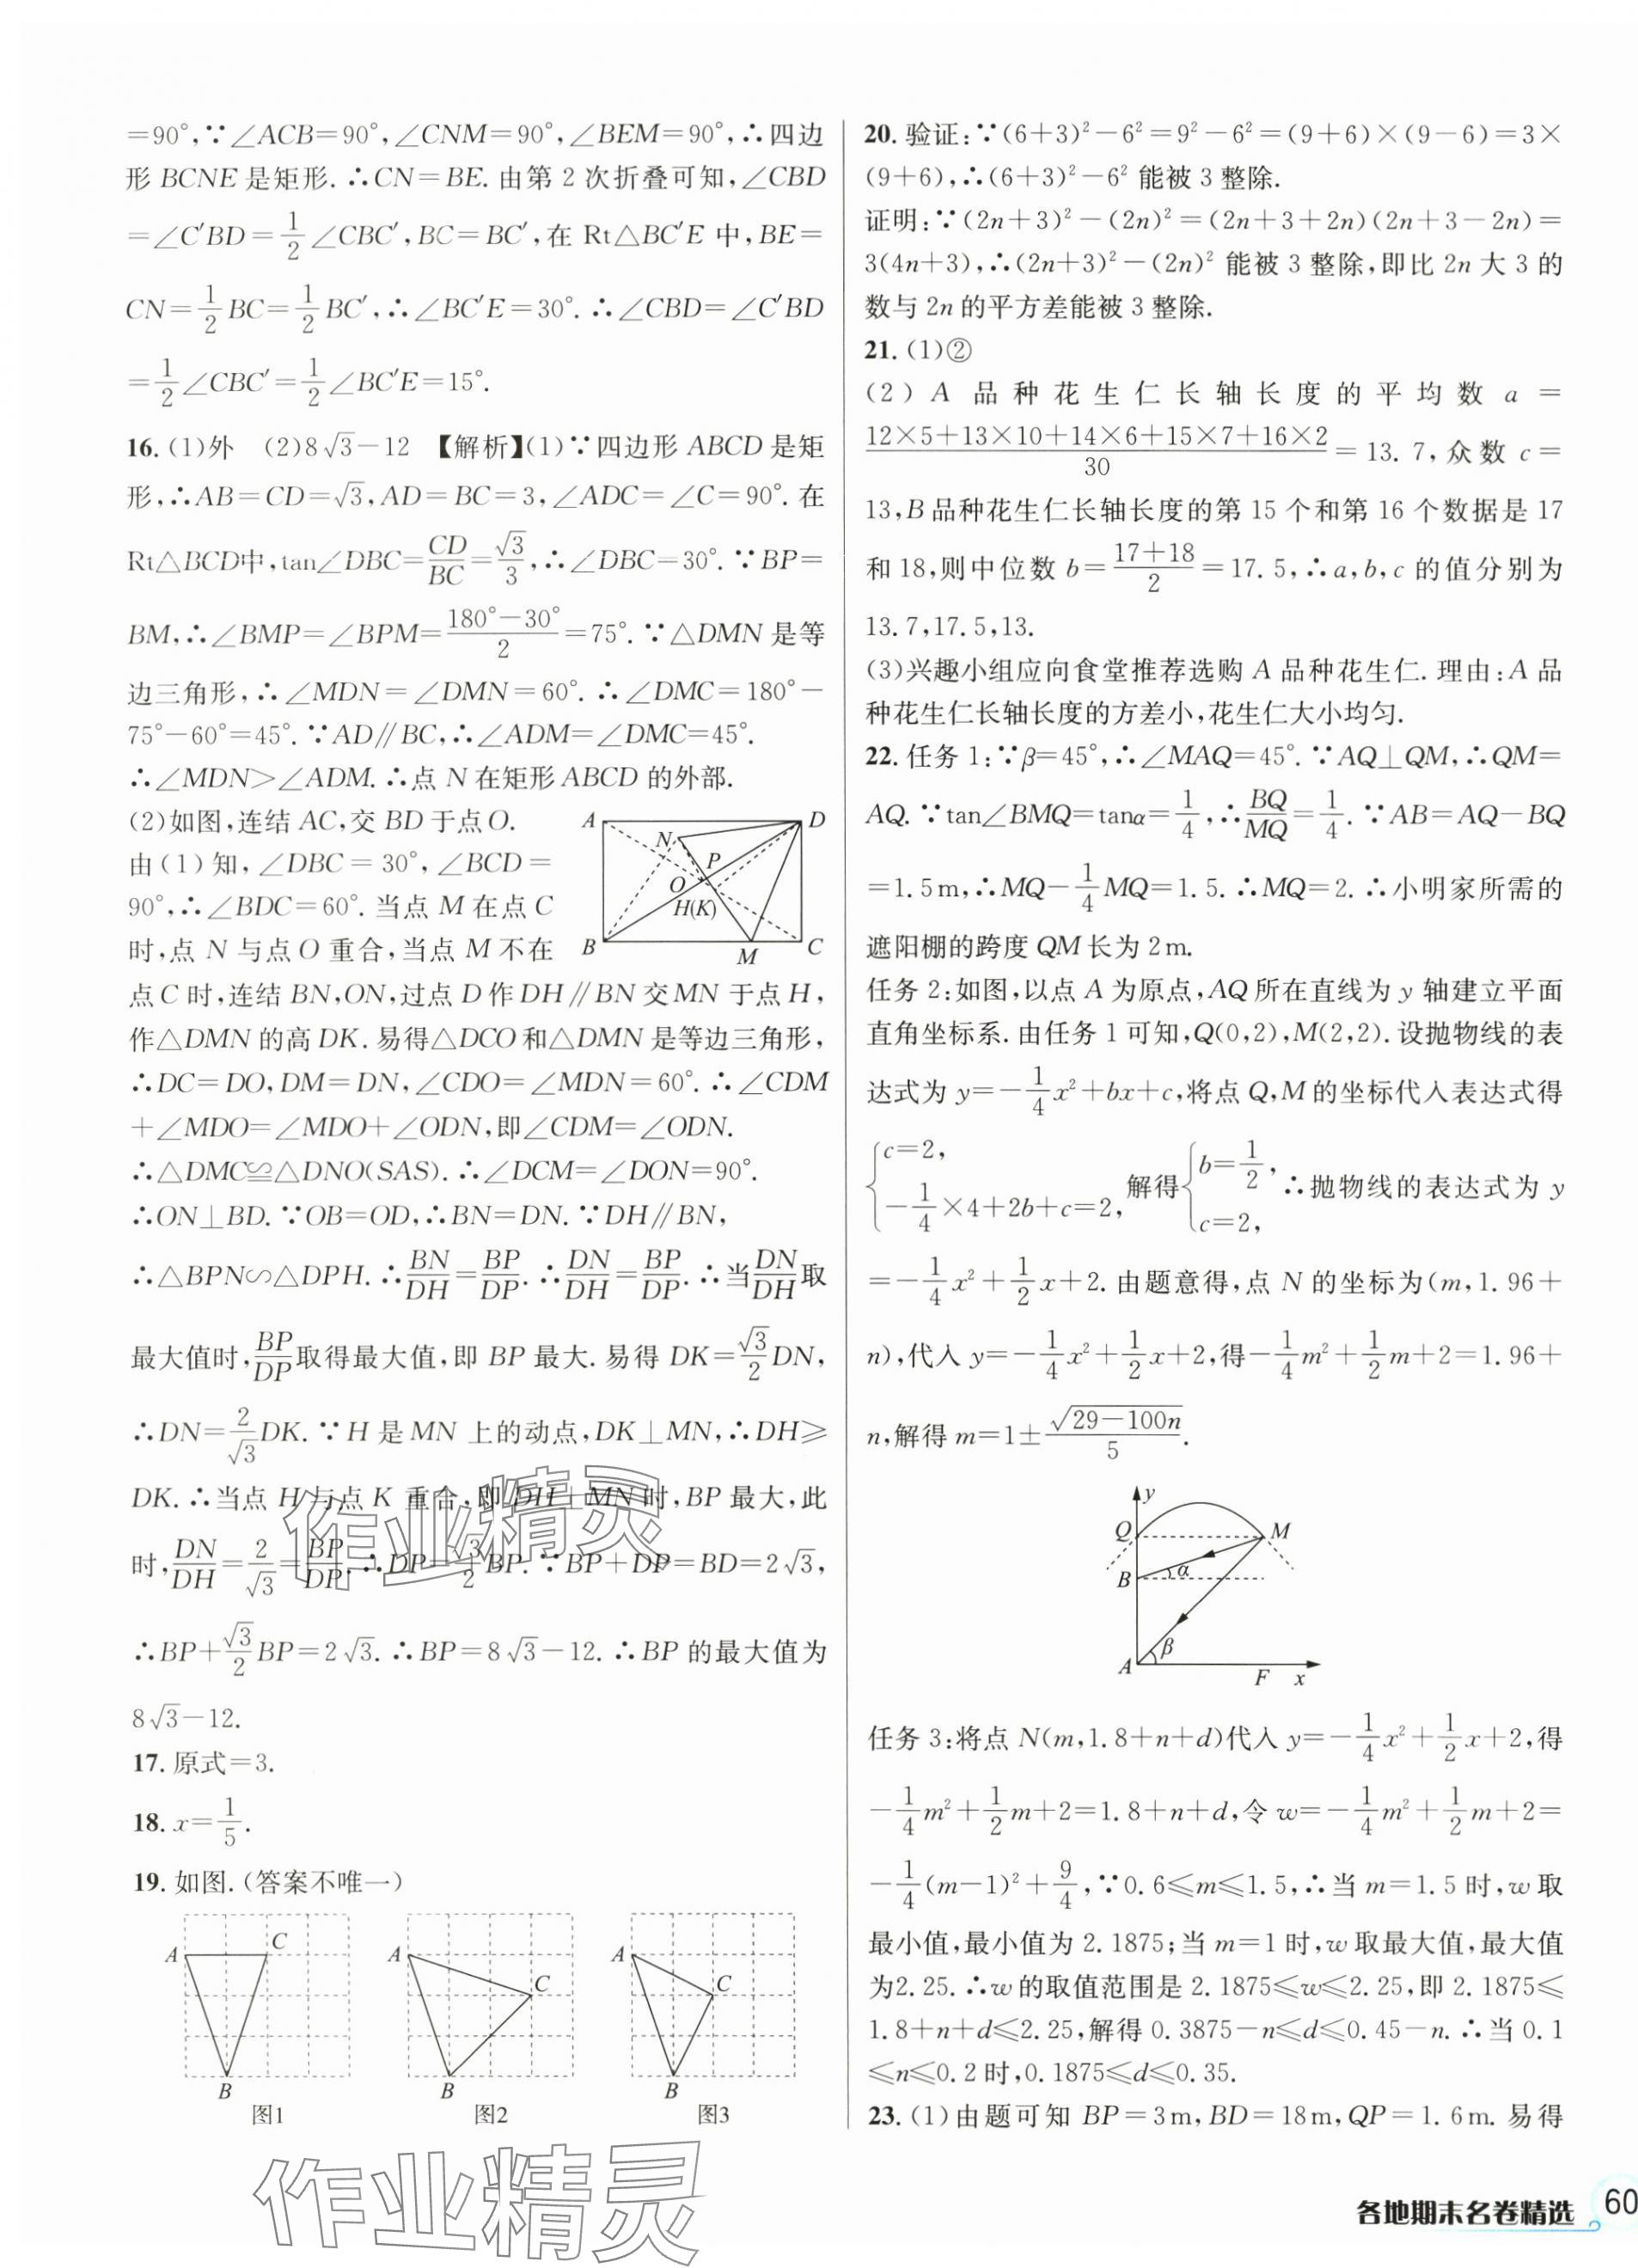 =90°,∵∠ACB=90°,∠CNM=90°,∠BEM=90°,∴四边
形 BCNE 是矩形. ∴CN=BE. 由第 2 次折叠可知,∠CBD
=∠C′BD=1/2∠CBC′,BC=BC′,在 Rt△BC′E 中,BE=
CN=1/2BC=1/2BC′,∴∠BC′E=30°. ∴∠CBD=∠C′BD
=1/2∠CBC′=1/2∠BC′E=15°.
16. (1)外 (2)8√3-12 【解析】(1)∵四边形 ABCD 是矩
形,∴AB=CD=√3,AD=BC=3,∠ADC=∠C=90°. 在
Rt△BCD中,tan∠DBC=CD/BC=√3/3,∴∠DBC=30°. ∵BP=
BM,∴∠BMP=∠BPM=(180°-30°)/2=75°. ∵△DMN 是等
边三角形,∴∠MDN=∠DMN=60°. ∴∠DMC=180°-
75°-60°=45°. ∵AD∥BC,∴∠ADM=∠DMC=45°.
∴∠MDN>∠ADM. ∴点 N 在矩形 ABCD 的外部.
(2)如图,连结 AC,交 BD 于点 O.
由(1)知,∠DBC=30°,∠BCD=
90°,∴∠BDC=60°. 当点 M 在点 C
时,点 N 与点 O 重合,当点 M 不在
A D N P O H(K) B M C
点 C 时,连结 BN,ON,过点 D 作 DH∥BN 交 MN 于点 H,
作△DMN 的高 DK. 易得△DCO 和△DMN 是等边三角形,
∴DC=DO,DM=DN,∠CDO=∠MDN=60°. ∴∠CDM
+∠MDO=∠MDO+∠ODN,即∠CDM=∠ODN.
∴△DMC≌△DNO(SAS). ∴∠DCM=∠DON=90°.
∴ON⊥BD. ∵OB=OD,∴BN=DN. ∵DH∥BN,
∴△BPN∽△DPH. ∴BN/DH=BP/DP. ∴DN/DH=BP/DP. ∴当DN/DH取
最大值时,BP/DP取得最大值,即 BP 最大. 易得 DK=√3/2DN,
∴DN=2/√3DK. ∵H 是 MN 上的动点,DK⊥MN,∴DH≥
DK. ∴当点 H 与点 K 重合,即 DH⊥MN 时,BP 最大,此
时,DN/DH=2/√3=BP/DP. ∴DP=√3/2BP. ∵BP+DP=BD=2√3,
∴BP+√3/2BP=2√3. ∴BP=8√3-12. ∴BP 的最大值为
8√3-12.
17. 原式=3.
18. x=1/5.
19. 如图. (答案不唯一)
A C B
图1
A C B
图2
A C B
图3
20. 验证:∵(6+3)²-6²=9²-6²=(9+6)×(9-6)=3×
(9+6),∴(6+3)²-6² 能被 3 整除.
证明:∵(2n+3)²-(2n)²=(2n+3+2n)(2n+3-2n)=
3(4n+3),∴(2n+3)²-(2n)² 能被 3 整除,即比 2n 大 3 的
数与 2n 的平方差能被 3 整除.
21. (1)②
(2) A 品种花生仁长轴长度的平均数 a=
(12×5+13×10+14×6+15×7+16×2)/30=13.7,众数 c=
13,B 品种花生仁长轴长度的第 15 个和第 16 个数据是 17
和 18,则中位数 b=(17+18)/2=17.5,∴a,b,c 的值分别为
13.7,17.5,13.
(3)兴趣小组应向食堂推荐选购 A 品种花生仁. 理由:A 品
种花生仁长轴长度的方差小,花生仁大小均匀.
22. 任务 1:∵β=45°,∴∠MAQ=45°. ∵AQ⊥QM,∴QM=
AQ. ∵tan∠BMQ=tanα=1/4,∴BQ/MQ=1/4. ∵AB=AQ-BQ
=1.5 m,∴MQ-1/4MQ=1.5. ∴MQ=2. ∴小明家所需的
遮阳棚的跨度 QM 长为 2 m.
任务 2:如图,以点 A 为原点,AQ 所在直线为 y 轴建立平面
直角坐标系. 由任务 1 可知,Q(0,2),M(2,2). 设抛物线的表
达式为 y=-1/4x²+bx+c,将点 Q,M 的坐标代入表达式得
{c=2, -1/4×4+2b+c=2, 解得{b=1/2, c=2, ∴抛物线的表达式为 y
=-1/4x²+1/2x+2. 由题意得,点 N 的坐标为(m,1.96+
n),代入 y=-1/4x²+1/2x+2,得-1/4m²+1/2m+2=1.96+
n,解得 m=1±√(29-100n)/5.
y Q M B α A β F x
任务 3:将点 N(m,1.8+n+d)代入 y=-1/4x²+1/2x+2,得
-1/4m²+1/2m+2=1.8+n+d,令 w=-1/4m²+1/2m+2=
-1/4(m-1)²+9/4,∵0.6≤m≤1.5,∴当 m=1.5 时,w 取
最小值,最小值为 2.1875;当 m=1 时,w 取最大值,最大值
为2.25. ∴w 的取值范围是 2.1875≤w≤2.25,即 2.1875≤
1.8+n+d≤2.25,解得 0.3875-n≤d≤0.45-n. ∴当 0.1
≤n≤0.2 时,0.1875≤d≤0.35.
23. (1)由题可知 BP=3 m,BD=18 m,QP=1.6 m. 易得
作业精灵
作业精灵
各地期末名卷精选 60